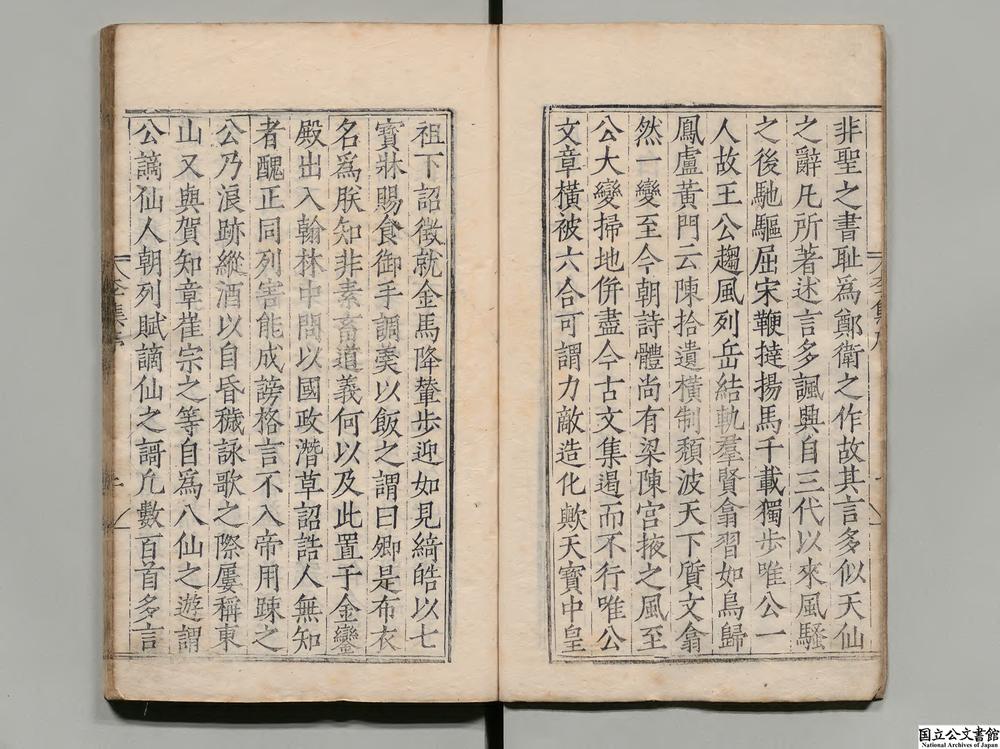 非聖之書耻爲鄭衛之作故其言多似天仙
之辭凡所著述言多諷興自三代以來風騷
之後馳驅屈宋鞭撻揚馬千載獨步唯公一
人故王公趨風列岳結軌羣賢翕習如鳥歸
鳳盧黃門云陳拾遺橫制頹波天下質文翕
然一變至今朝詩體尚有梁陳宮掖之風至
公大變掃地併盡今古文集遏而不行唯公
文章橫被六合可謂力敵造化歟天寶中皇
祖下詔徵就金馬降輦步迎如見綺皓以七
寳牀賜食御手調羮以飯之謂曰卿是布衣
名爲朕知非素畜道義何以及此置于金鑾
殿出入翰林中問以國政潛草詔誥人無知
者醜正同列害能成謗格言不入帝用疎之
公乃浪跡縱酒以自昏穢詠歌之際屢稱東
山又與賀知章崔宗之等自爲八仙之遊謂
公謫仙人朝列賦謫仙之謌凢數百首多言
國立公文書館
National Archives of Japan